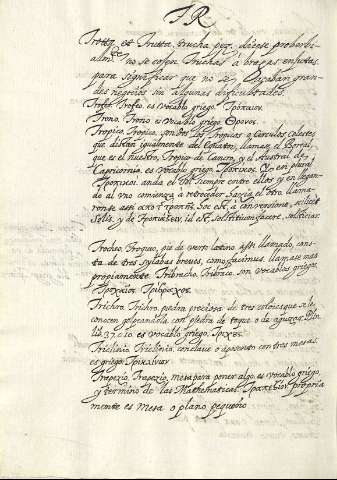 TR
Trotta es Trutta, trucha pez, dicese proberbi-
alm.te no se cojen truchas a bragas enjutas
para significar que no se acaban gran-
des negocios sin algunas dificultades.
Trofeo, Trofeo, es vocablo griego Τρόπαιον.
Treno, Treno es vocablo griego Θρονος.
Tropico, Tropico, son dos los Tropicos o Circulos celestes
que distan igualmente del Equator, llaman el Boreal,
que es el nuestro, Tropico de Cancro, y el Austral de
Capricornio, es vocablo griego, Τροπικος, en plural
Τροπικοι. anda el Sol siempre entre ellos, y en llegan-
do al uno comienza a retroceder hazia el otro, llama-
ronse assi απο τροπης hoc est, a conversione, scilicet
Solis, y de id est, solstitium facere,
Trocheo, Troqueo, pie de verso latino assi llamado, cons-
ta de tres syllabas breves, como facimus, llamase mas
propiamente Tribracho, Tribraco, son vocablos griegos
Τροχαιος Τριβραχος.
Trichro, Trichro, piedra preciosa de tres colores que se
conocen con piedra de toque o de aguzar, Plin.
lib. 37. c. 10. es vocablo griego,
Triclinio, Triclinio, conclave o aposento con tres mesas
es griego Τρικλινον
Trapezio, Trapezio, mesa para poner algo, es vocablo griego,
y termino de las Mathematicas, propria
mente es Mesa o plano pequeño